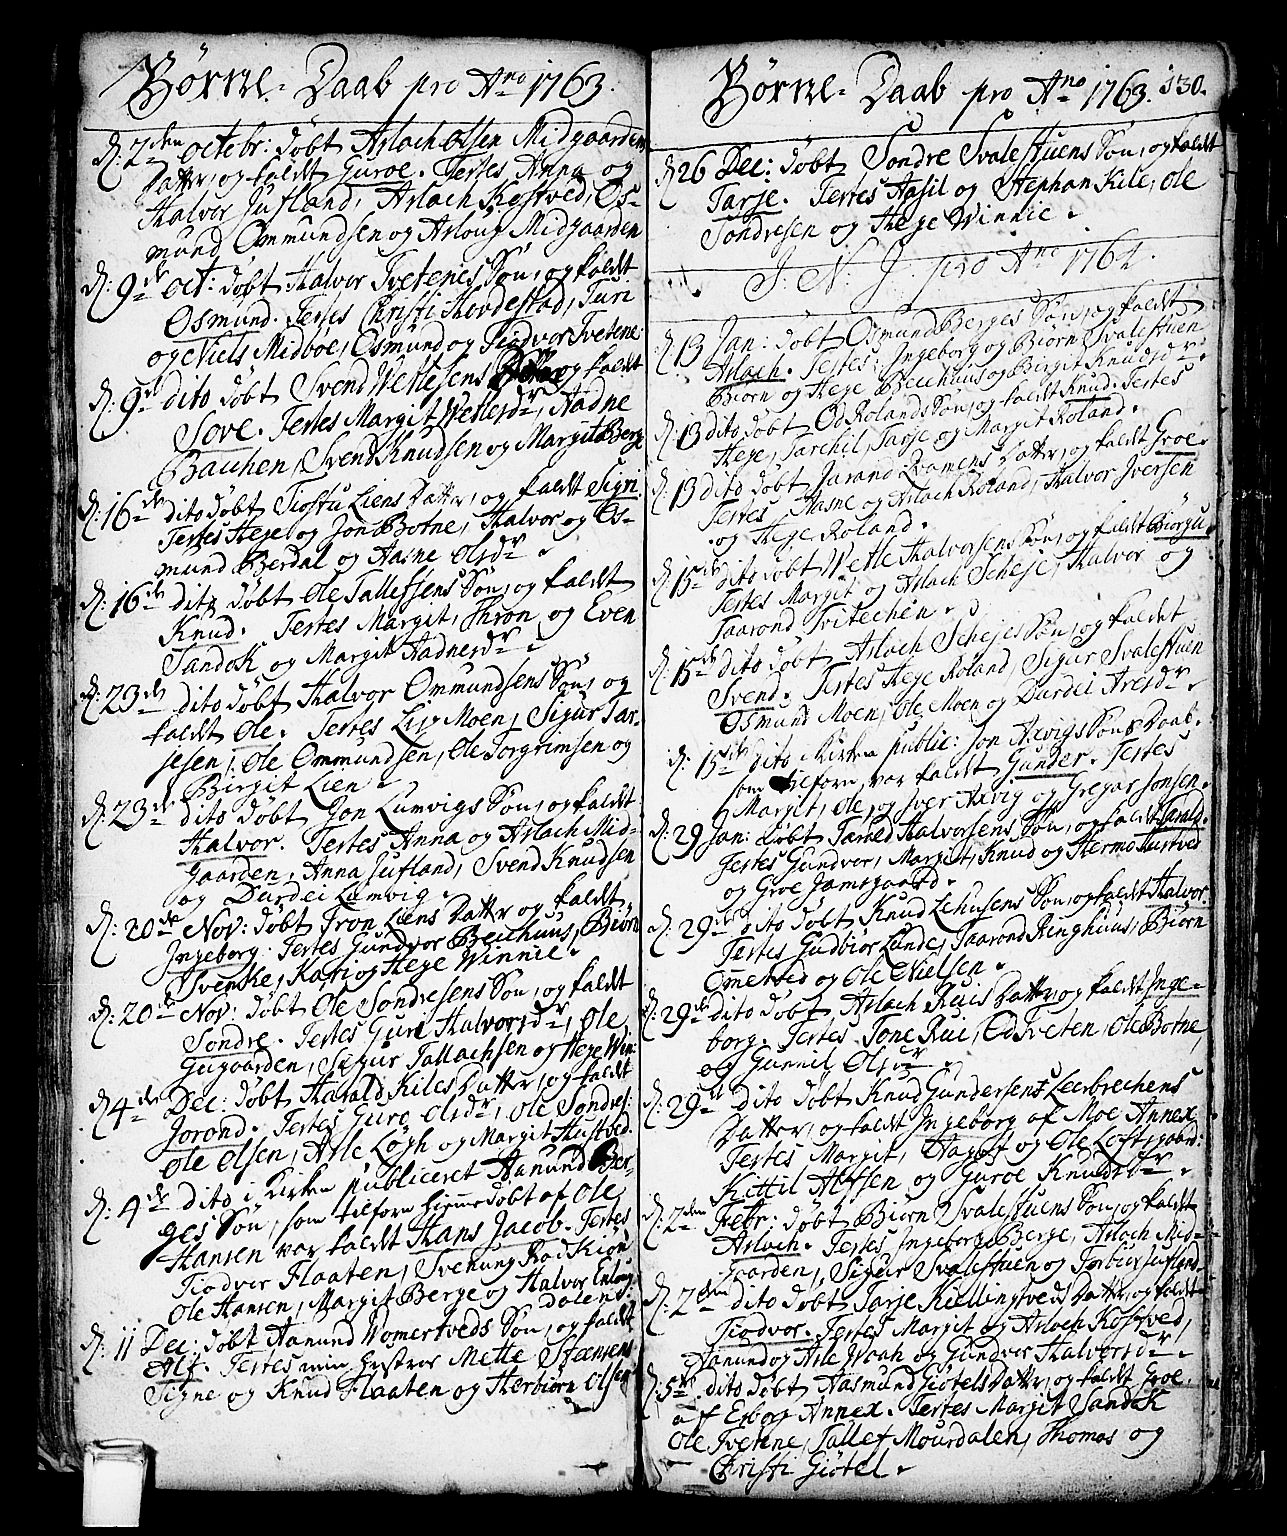 Børne-Daab pro Ano 1763.
D: 2den octobr: døbt Aslach Olsen Midgaarden
Datter, og kaldt Guroe. Testes Anna og
Halvor Jufland, Aslach Kostved, Os-
mund Ommundsen og Asloug Midgaarden
D: 9de oct: døbt Halvor Tvetenes Søn, og kaldt
Osmund. Testes Christi Hovdestad, Turi
og Niels Midboe, Osmund og Tiodvor Tvetene
D: 9de dito døbt Svend Wetlesens og kaldt
Sove. Testes Margit Wetlesdr, Aadne
Bauhen, Svend Knudsen og Margit Berge
D: 16de dito døbt Tiostu Liens Datter, og kaldt Sigri.
Testes Hege og Jon Botne, Halvor og Os-
mund Berdal og Aasne Olsdr.
D: 16de dito døbt Ole Tallefsens Søn, og kaldt
Knud. Testes Margit, Thron og Even
Sandok og Margit Aadnesdr.
D: 23de dito døbt Halvor Ommundsens Søn, og
kaldt Ole. Testes Liv Moen, Sigur Tar-
jesen, Ole Ommundsen, Ole Torgrimsen og
Birgit Lien.
D: 23de dito døbt Jon Lumvigs Søn, og kaldt
Halvor. Testes Anna og Aslach Mid-
gaarden, Anna Jufland, Svend Knudsen
og Durdei Lumvig.
D: 20de Nov: døbt Tron Liens Datter og kaldt
Ingeborg. Testes Gundvor Beuhuus, Biørn
Svenke, Kari og Hege Winnie.
D: 20de Nov: døbt Ole Sondresens Søn, og kaldt
Sondre. Testes Guri Halvorsdr, Ole
Gugaarden, Sigur Tallachsen og Hege Win-
D: 4de Dec: døbt Harald Kiles Datter, og kaldt
Jorond. Testes Guro Olsdr, Ole Sondres:
Ole Olsen, Asle Løgh og Margit Hustved.
D: 4de dito i Kirken publiceret Aanund Ber-
ges Søn, som tilforn hiemedøbt af Ole
Hansen var kaldt Hans Jacob. Testes
Tiodver Flaaten, Svenung Rod Kiøn
Ole Hansen, Margit Berge og Halvor Enloug
dalen.
D: 11 Dec: døbt Aanund Womertveds Søn, og kaldt
Alf. Testes min Hustroe Mette Stensens
Signe og Knud Flaaten og Herbiørn Olsen
Børne-Daab pro Ano 1763. 130.
D: 26 Dec: døbt Sondre Svalestuens Søn, og kaldt
Tarje. Testes Aasil og Stephan Kile, Ole
Sondresen og Hege Winnie.
I. N. J. pro Ano 1764.
D: 13 Jan: døbt Osmund Berges Søn, og kaldt
Aslach. Testes: Ingeborg og Biørn Svalestuen
Biørn og Hege Beuhuus og Bergit Knudsdr.
D: 13 dito døbt Od Rolands Søn, og kaldt Knud. Testes
Hege, Tarchil, Tarje og Margit Roland.
D: 13 dito døbt Jarand Ramens Datter, og kaldt Groe.
Testes Aasne og Aslach Roland, Halvor Iversen
og Hege Roland.
D: 15de dito døbt Wetle Halvorsens Søn, og kaldt Biørgu
Testes Margit og Aslach Scheje, Halvor og
Taarond Tvitechen.
D: 15de dito døbt Aslach Schejes Søn, og kaldet
Svend. Testes Hege Roland, Sigur Svalestuen
Osmund Moen, Ole Moen og Durdei Aresdr.
D: 15de dito i Kirken public: Jon Aavigs Søns Daab.
som tilforn var kaldt Gunder. Testes
Margit, Ole og Iver Aavig og Gregar Jonsen.
D: 29 Jan: døbt Tarned Halvorsens Søn, og kaldt
Testes Gundvor, Margit, Knud og Hermo Hustved
og Groe Jamsgaard.
D: 29de dito døbt Knud Lehusens Søn, og kaldt Halvor.
Testes Gudbiør Lunde, Taarond Ringhuus, Biørn
Ometved og Ole Nielsen.
D: 29de dito døbt, Aslach Ruis Datter, og kaldt Inge-
borg. Testes Tone Rui, Od Tveten, Ole Botne,
og Gunnil Olsdr
D: 29de dito døbt Knud Gundersens Leerbrechens
Datter, og kaldt Ingeborg af Moe Annex
Testes Margit, Aagot og Ole Loftsgaard:
Kettil Alfsen og Guroe Knudsdr.
D: 2den Febr: døbt Biørn Svalestuens Søn, og kaldt
Aslach. Testes Ingeborg Berge, Aslach Mid-
gaarden, Sigur Svalestuen og Torbiør Juflands
D: 2den dito døbt Tarje Kiellingtveds Datter, og kaldt
Tiodvor. Testes Margit og Aslach Kostved,
Aanund og Asle Woah og Gundver Halvorsdr.
D: 5te dito døbt Aasmund Giøtels Datter, og kaldt Groe,
af Esborg Annex. Testes Margit Sandok
Ole Tvetene, Tallef Mourdalen, Thomas og
Christi Giøtel.